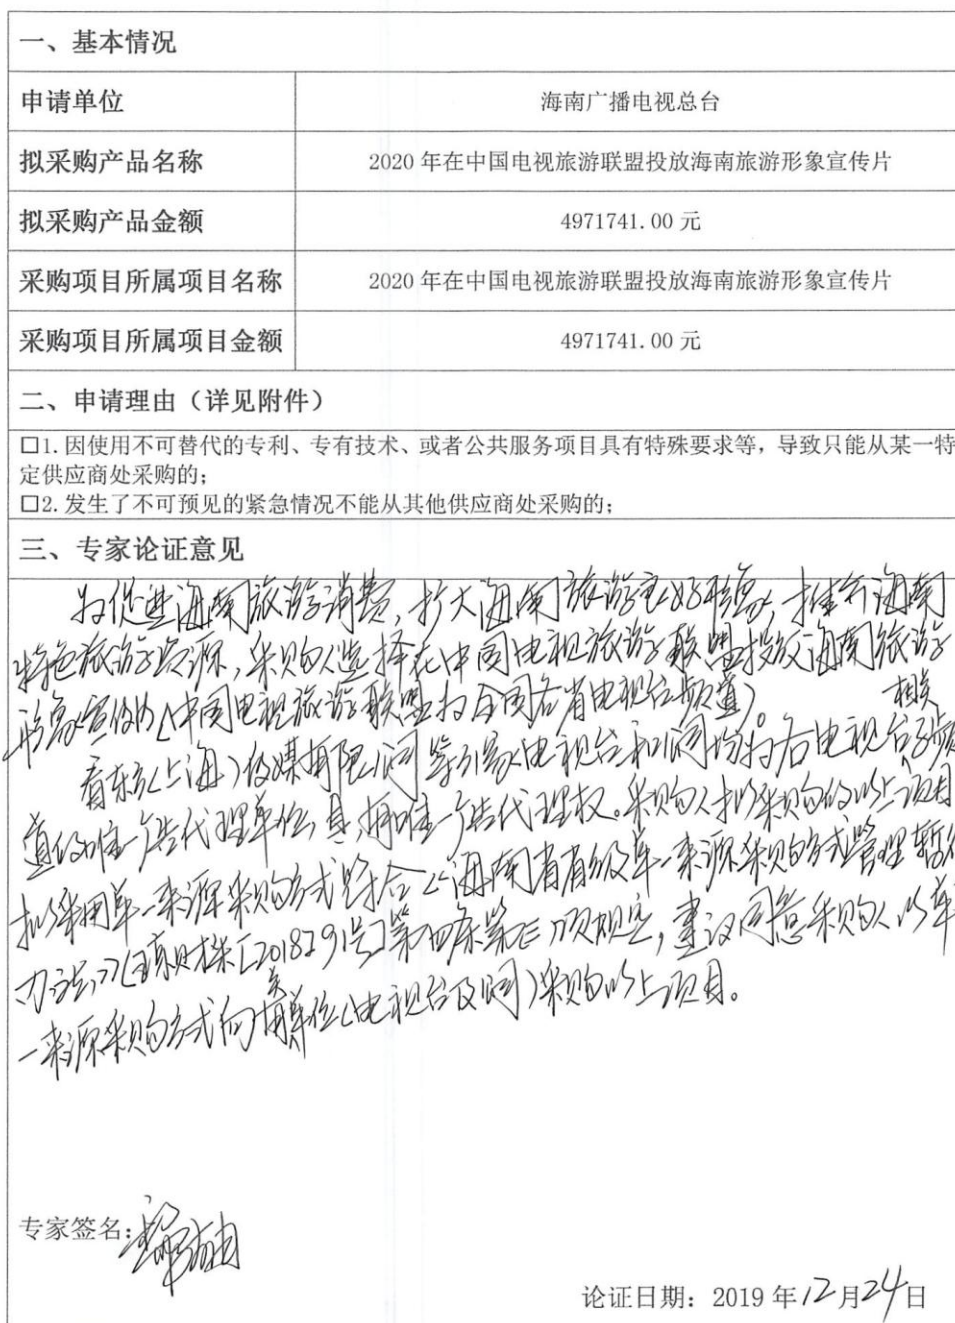 一、基本情况
申请单位 海南广播电视总台
拟采购产品名称 2020 年在中国电视旅游联盟投放海南旅游形象宣传片
拟采购产品金额 4971741.00 元
采购项目所属项目名称 2020 年在中国电视旅游联盟投放海南旅游形象宣传片
采购项目所属项目金额 4971741.00 元
二、申请理由（详见附件）
□1.因使用不可替代的专利、专有技术、或者公共服务项目具有特殊要求等，导致只能从某一特
定供应商处采购的；
□2.发生了不可预见的紧急情况不能从其他供应商处采购的；
三、专家论证意见
为促进海南旅游消费，扩大海南旅游形象，推介海南
特色旅游资源，采购人选择在中国电视旅游联盟投放海南旅游
形象宣传片（中国电视旅游联盟为全国各省电视台频道）。
（上海）传媒有限公司等家电视台和公司均为各电视台相关频
道的唯一广告代理单位，具拥唯一广告代理权。采购人拟采购的以上项目
拟采用单一来源采购方式符合《海南省省级单一来源采购方式管理暂行
办法》（琼财采[2018]291号）第四条第项规定，建议同意采购人以单
一来源采购方式向单位（电视台及公司）采购以上项目。
专家签名：
论证日期：2019 年12月24日